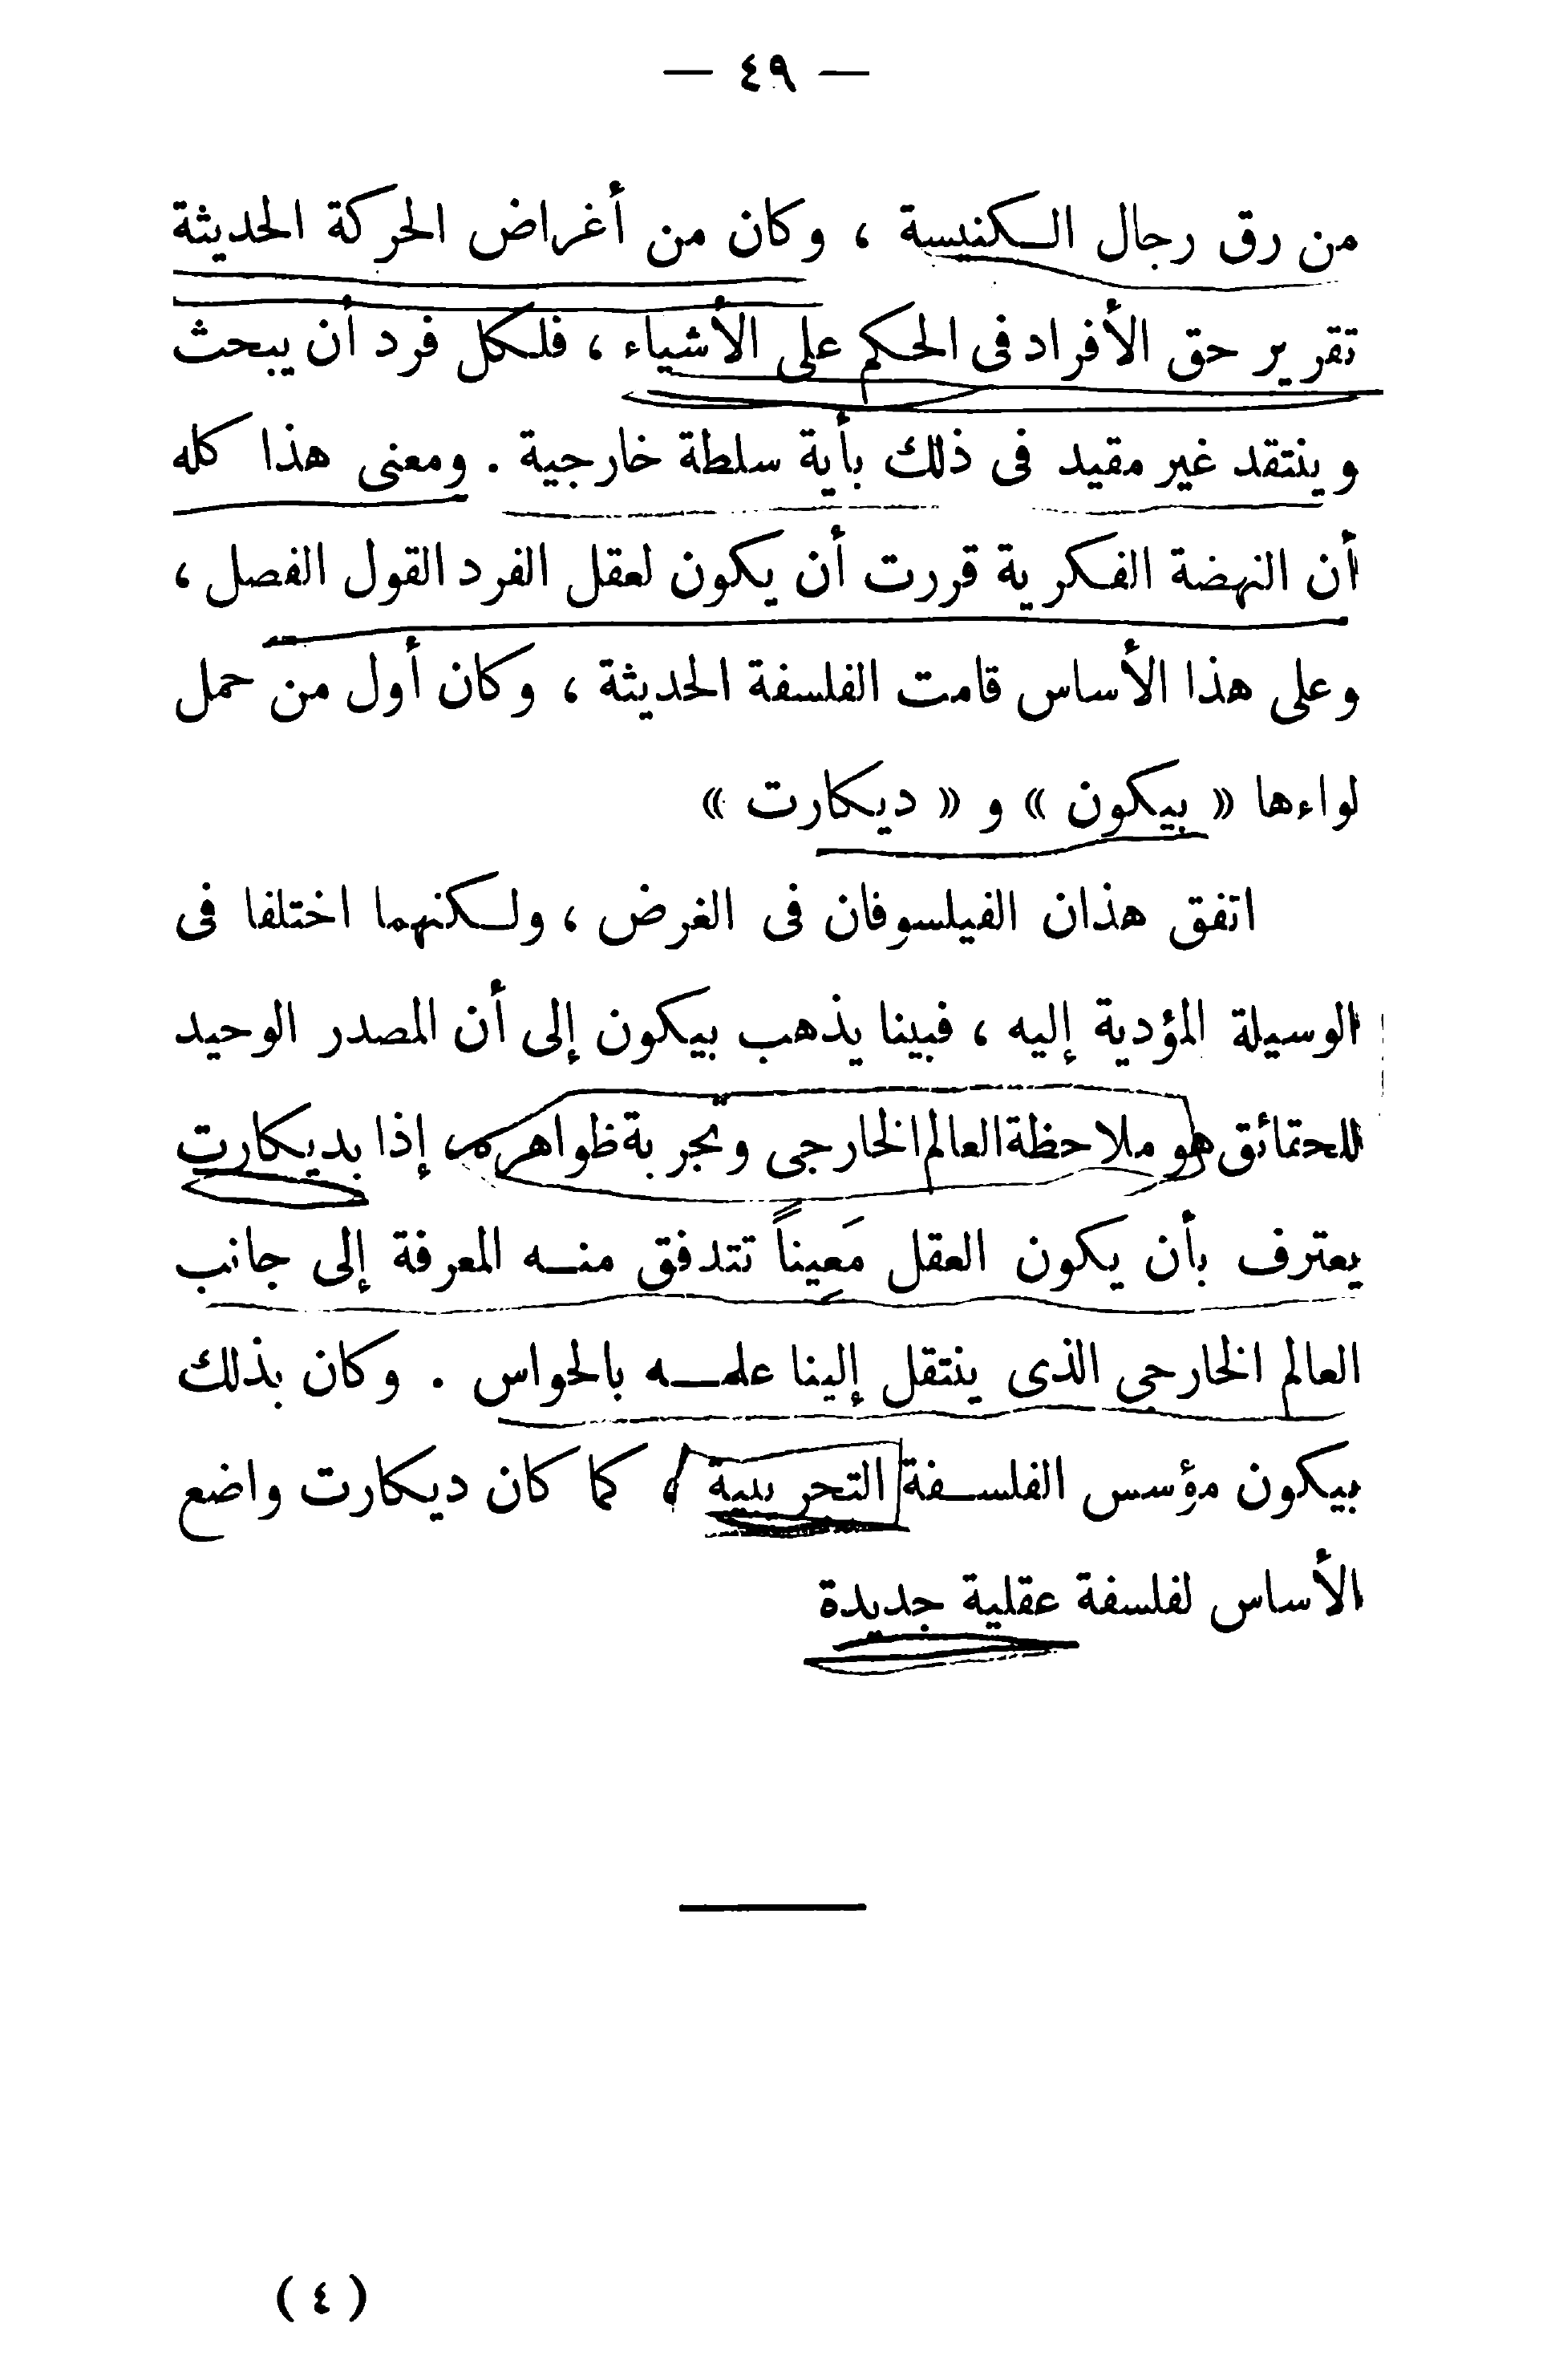 — ٤٩ —
من رق رجال الكنيسة ، وكان من أغراض الحركة الحديثة
تقرير حق الأفراد فى الحكم على الأشياء ، فلكل فرد أن يبحث
وينتقد غير مقيد فى ذلك بأية سلطة خارجية . ومعنى هذا كله
أن النهضة الفكرية قررت أن يكون لعقل الفرد القول الفصل ،
وعلى هذا الأساس قامت الفلسفة الحديثة ، وكان أول من حمل
لواءها « بيكون » و « ديكارت »
اتفق هذان الفيلسوفان فى الغرض ، ولكنهما اختلفا فى
الوسيلة المؤدية إليه ، فبينا يذهب بيكون إلى أن المصدر الوحيد
للحقائق هو ملاحظة العالم الخارجى وتجربة ظواهره ، إذا بديكارت
يعترف بأن يكون العقل مَعِيناً تتدفق منه المعرفة إلى جانب
العالم الخارجى الذى ينتقل إلينا علمه بالحواس . وكان بذلك
بيكون مؤسس الفلسفة التجريبية ، كما كان ديكارت واضع
الأساس لفلسفة عقلية جديدة
( ٤ )